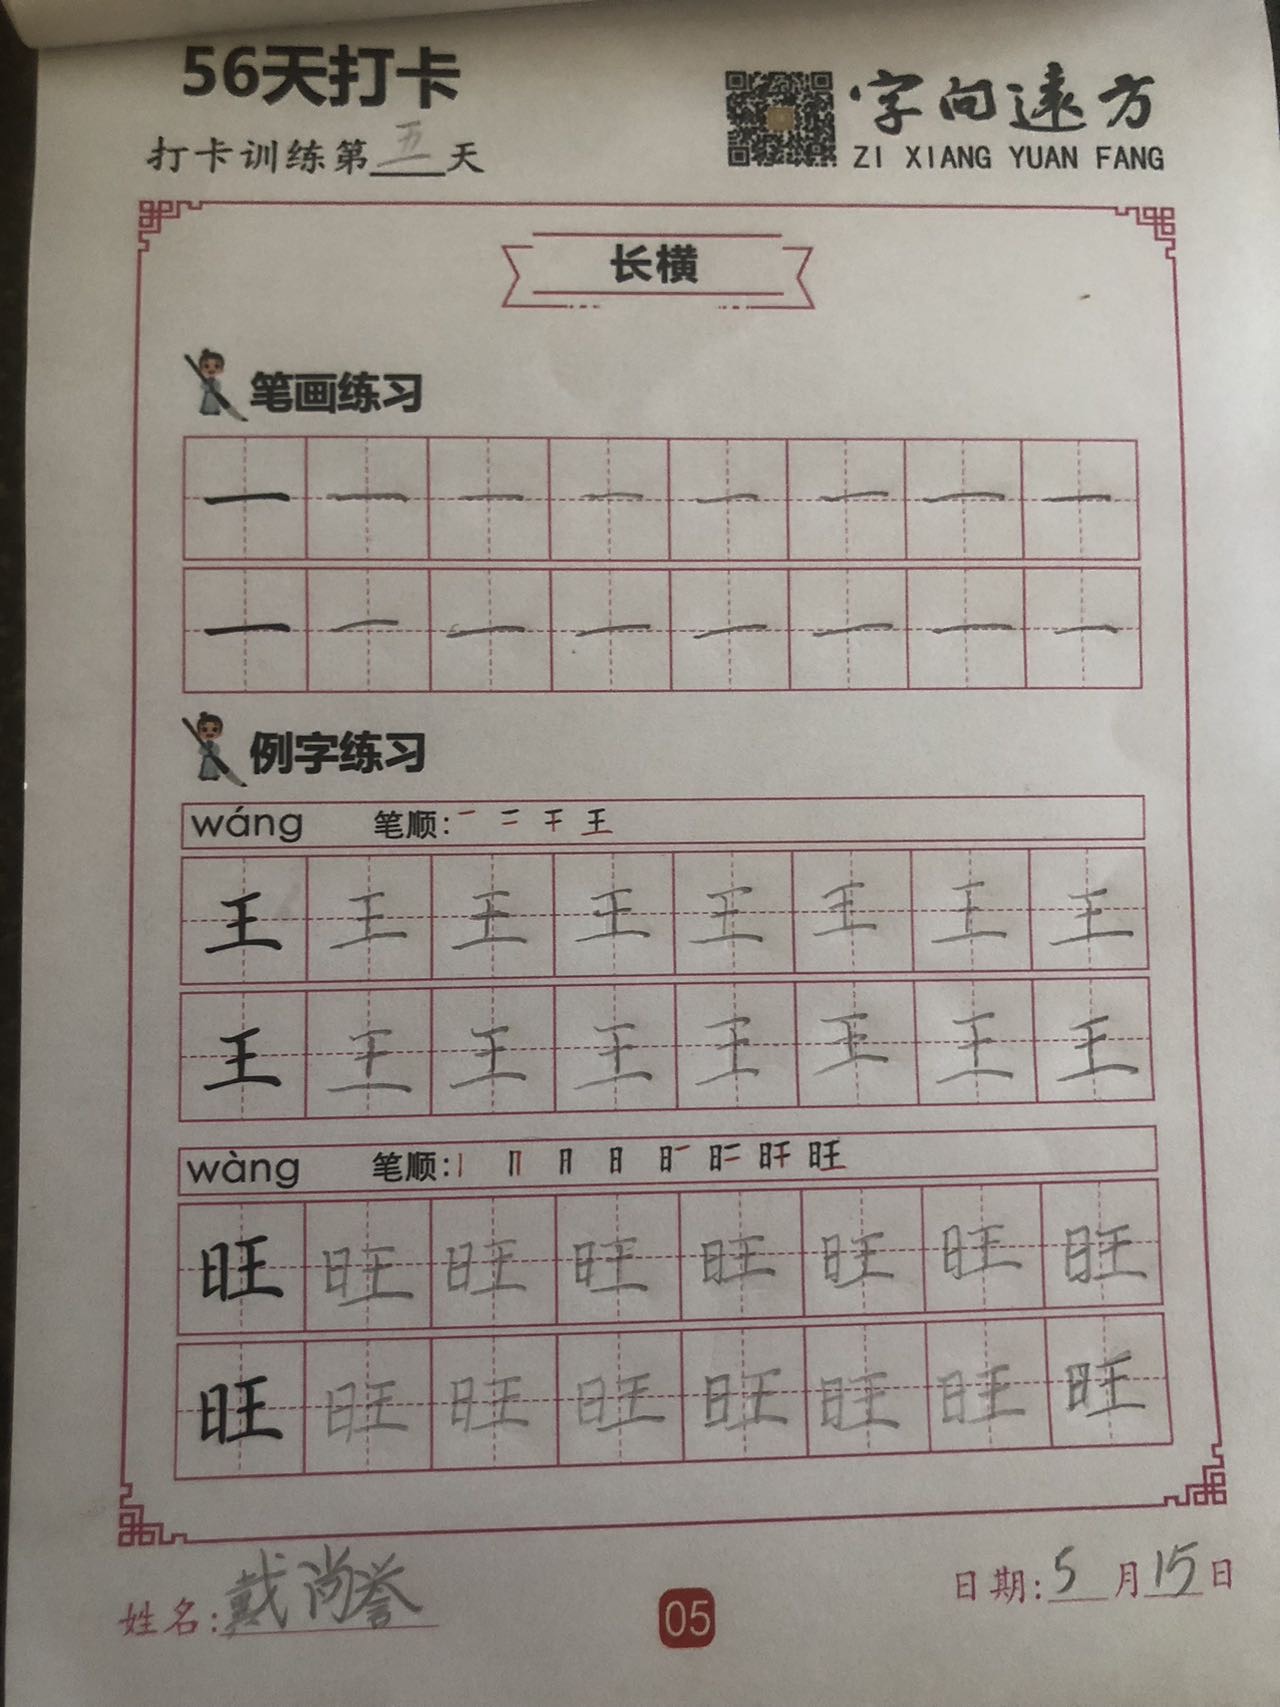 56天打卡
字向遠方
打卡训练第五天
ZI XIANG YUAN FANG
长横
笔画练习
一 一 一 一 一 一 一 一
一 一 一 一 一 一 一 一
例字练习
wáng 笔顺: 一 二 干 王
王 王 王 王 王 王 王 王
王 王 王 王 王 王 王 王
wàng 笔顺: 丨 冂 日 日 日一 日二 旰 旺
旺 旺 旺 旺 旺 旺 旺 旺
旺 旺 旺 旺 旺 旺 旺 旺
姓名:戴尚誉
05
日期:5月15日